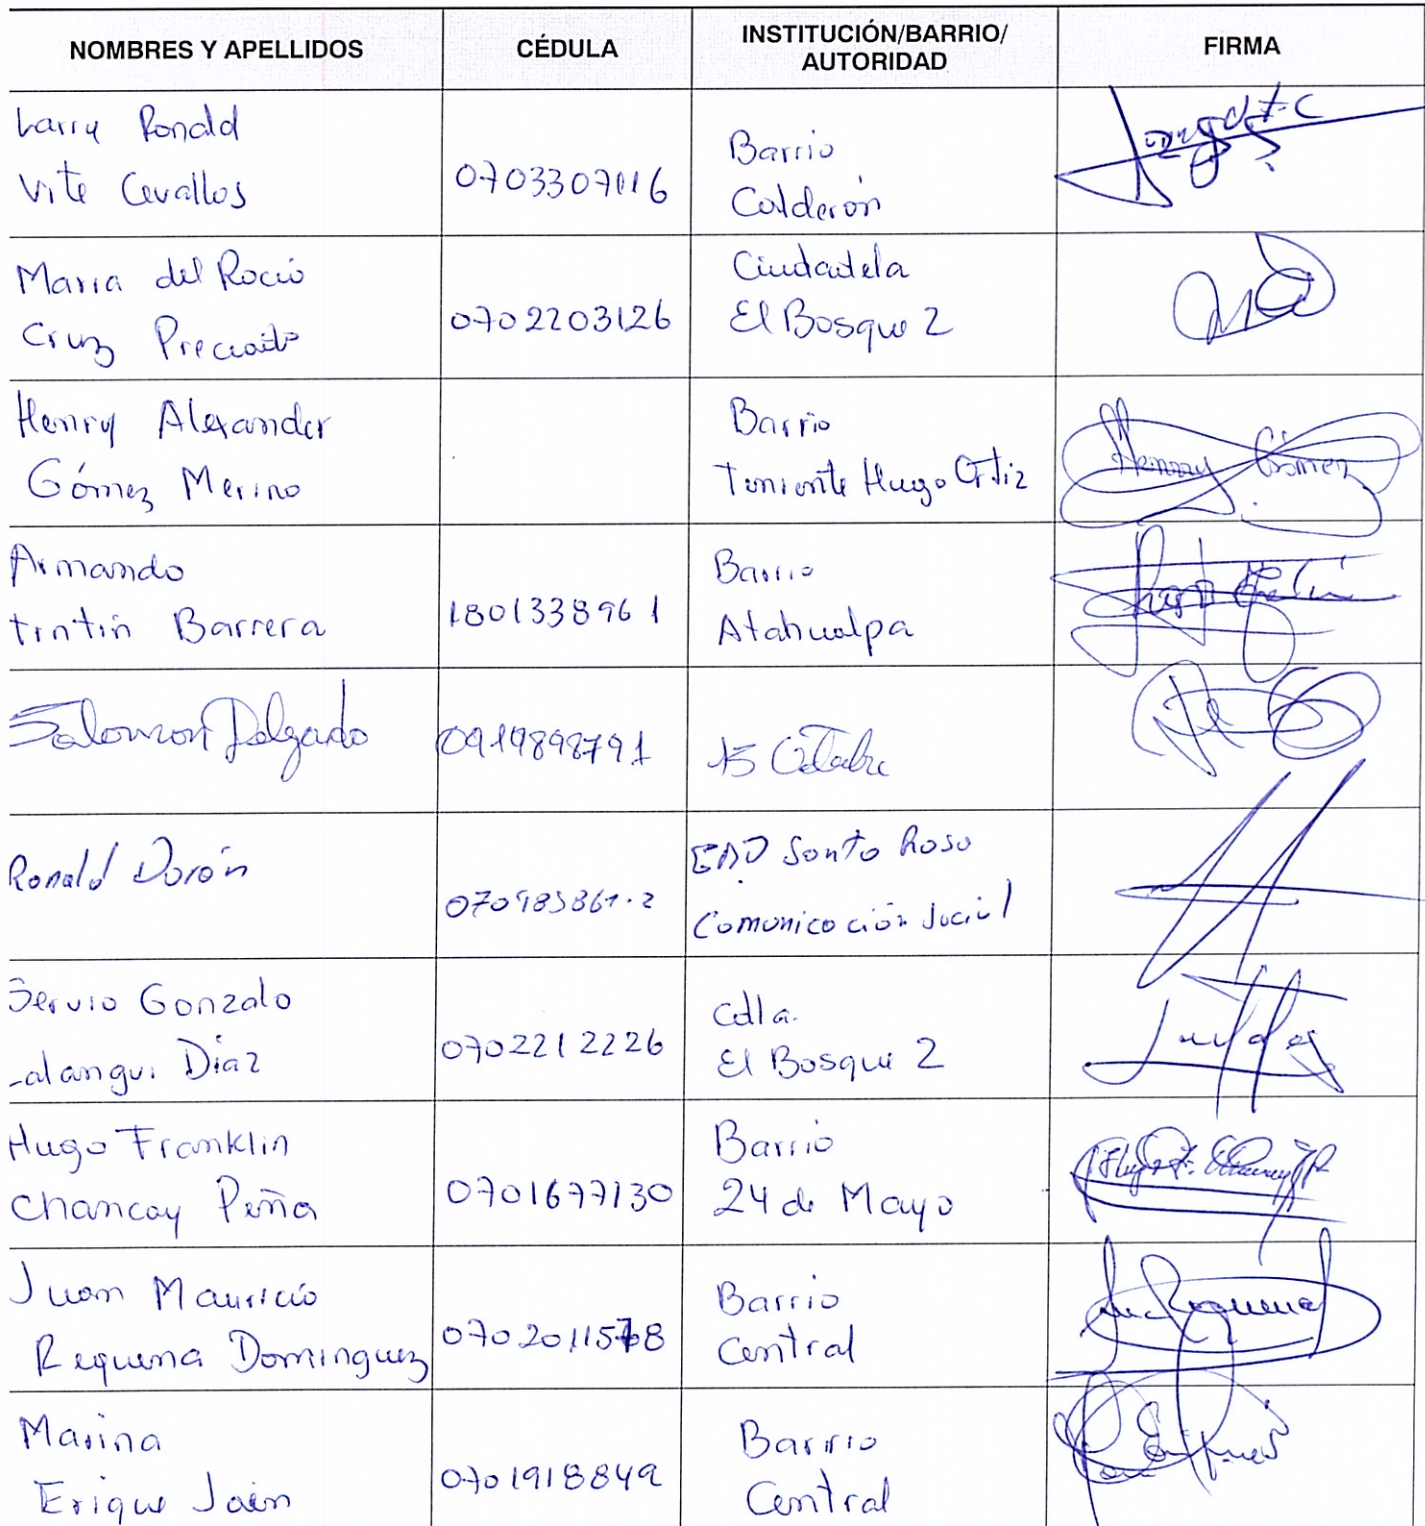 NOMBRES Y APELLIDOS CÉDULA INSTITUCIÓN/BARRIO/ AUTORIDAD FIRMA
Larry Ronald
Vite Cevallos
0703307116
Barrio
Calderón
Maria del Rocio
Cruz Preciado
0702203126
Ciudadela
El Bosque 2
Henry Alexander
Gómez Merino
Barrio
Teniente Hugo Ortiz
Henry Gómez
Armando
Tintin Barrera
1801338961
Barrio
Atahualpa
Salomon Delgado
0919898791
15 Octubre
Ronald Durán
GAD Santa Rosa
Comunicación Social
Servio Gonzalo
Díaz
0702212226
Cdla.
El Bosque 2
Hugo Franklin
Chancay Peña
0701677130
Barrio
24 de Mayo
Hugo F. Chancay P.
Juan Mauricio
Requena Dominguez
0702011578
Barrio
Central
Requena
Marina
Erique Jaén
070191884
Barrio
Central